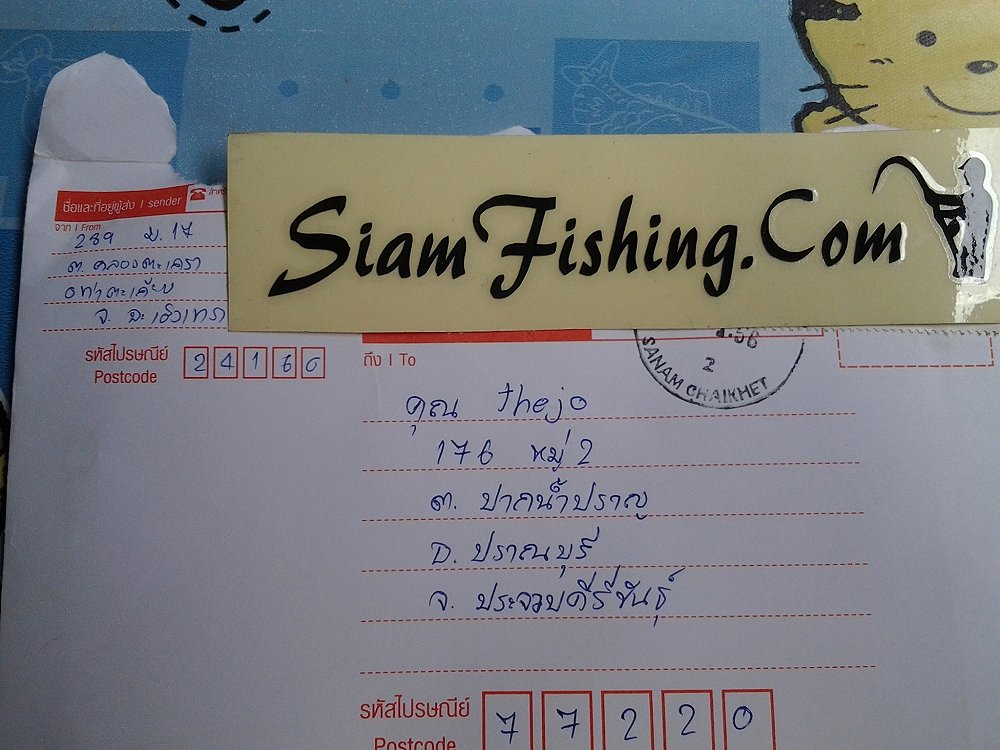 SiamFishing.Com
ชื่อและที่อยู่ผู้ส่ง | sender
จาก | From
289 ม.17
ต.คลองตะเกรา
อ ท่าตะเกียบ
จ. ฉะเชิงเทรา
รหัสไปรษณีย์ 24160
Postcode
.56
2
SANAM CHAIKHET
ถึง | To
คุณ thejo
176 หมู่ 2
ต. ปากน้ำปราณ
อ. ปราณบุรี
จ. ประจวบคีรีขันธ์
รหัสไปรษณีย์ 77220
Postcode